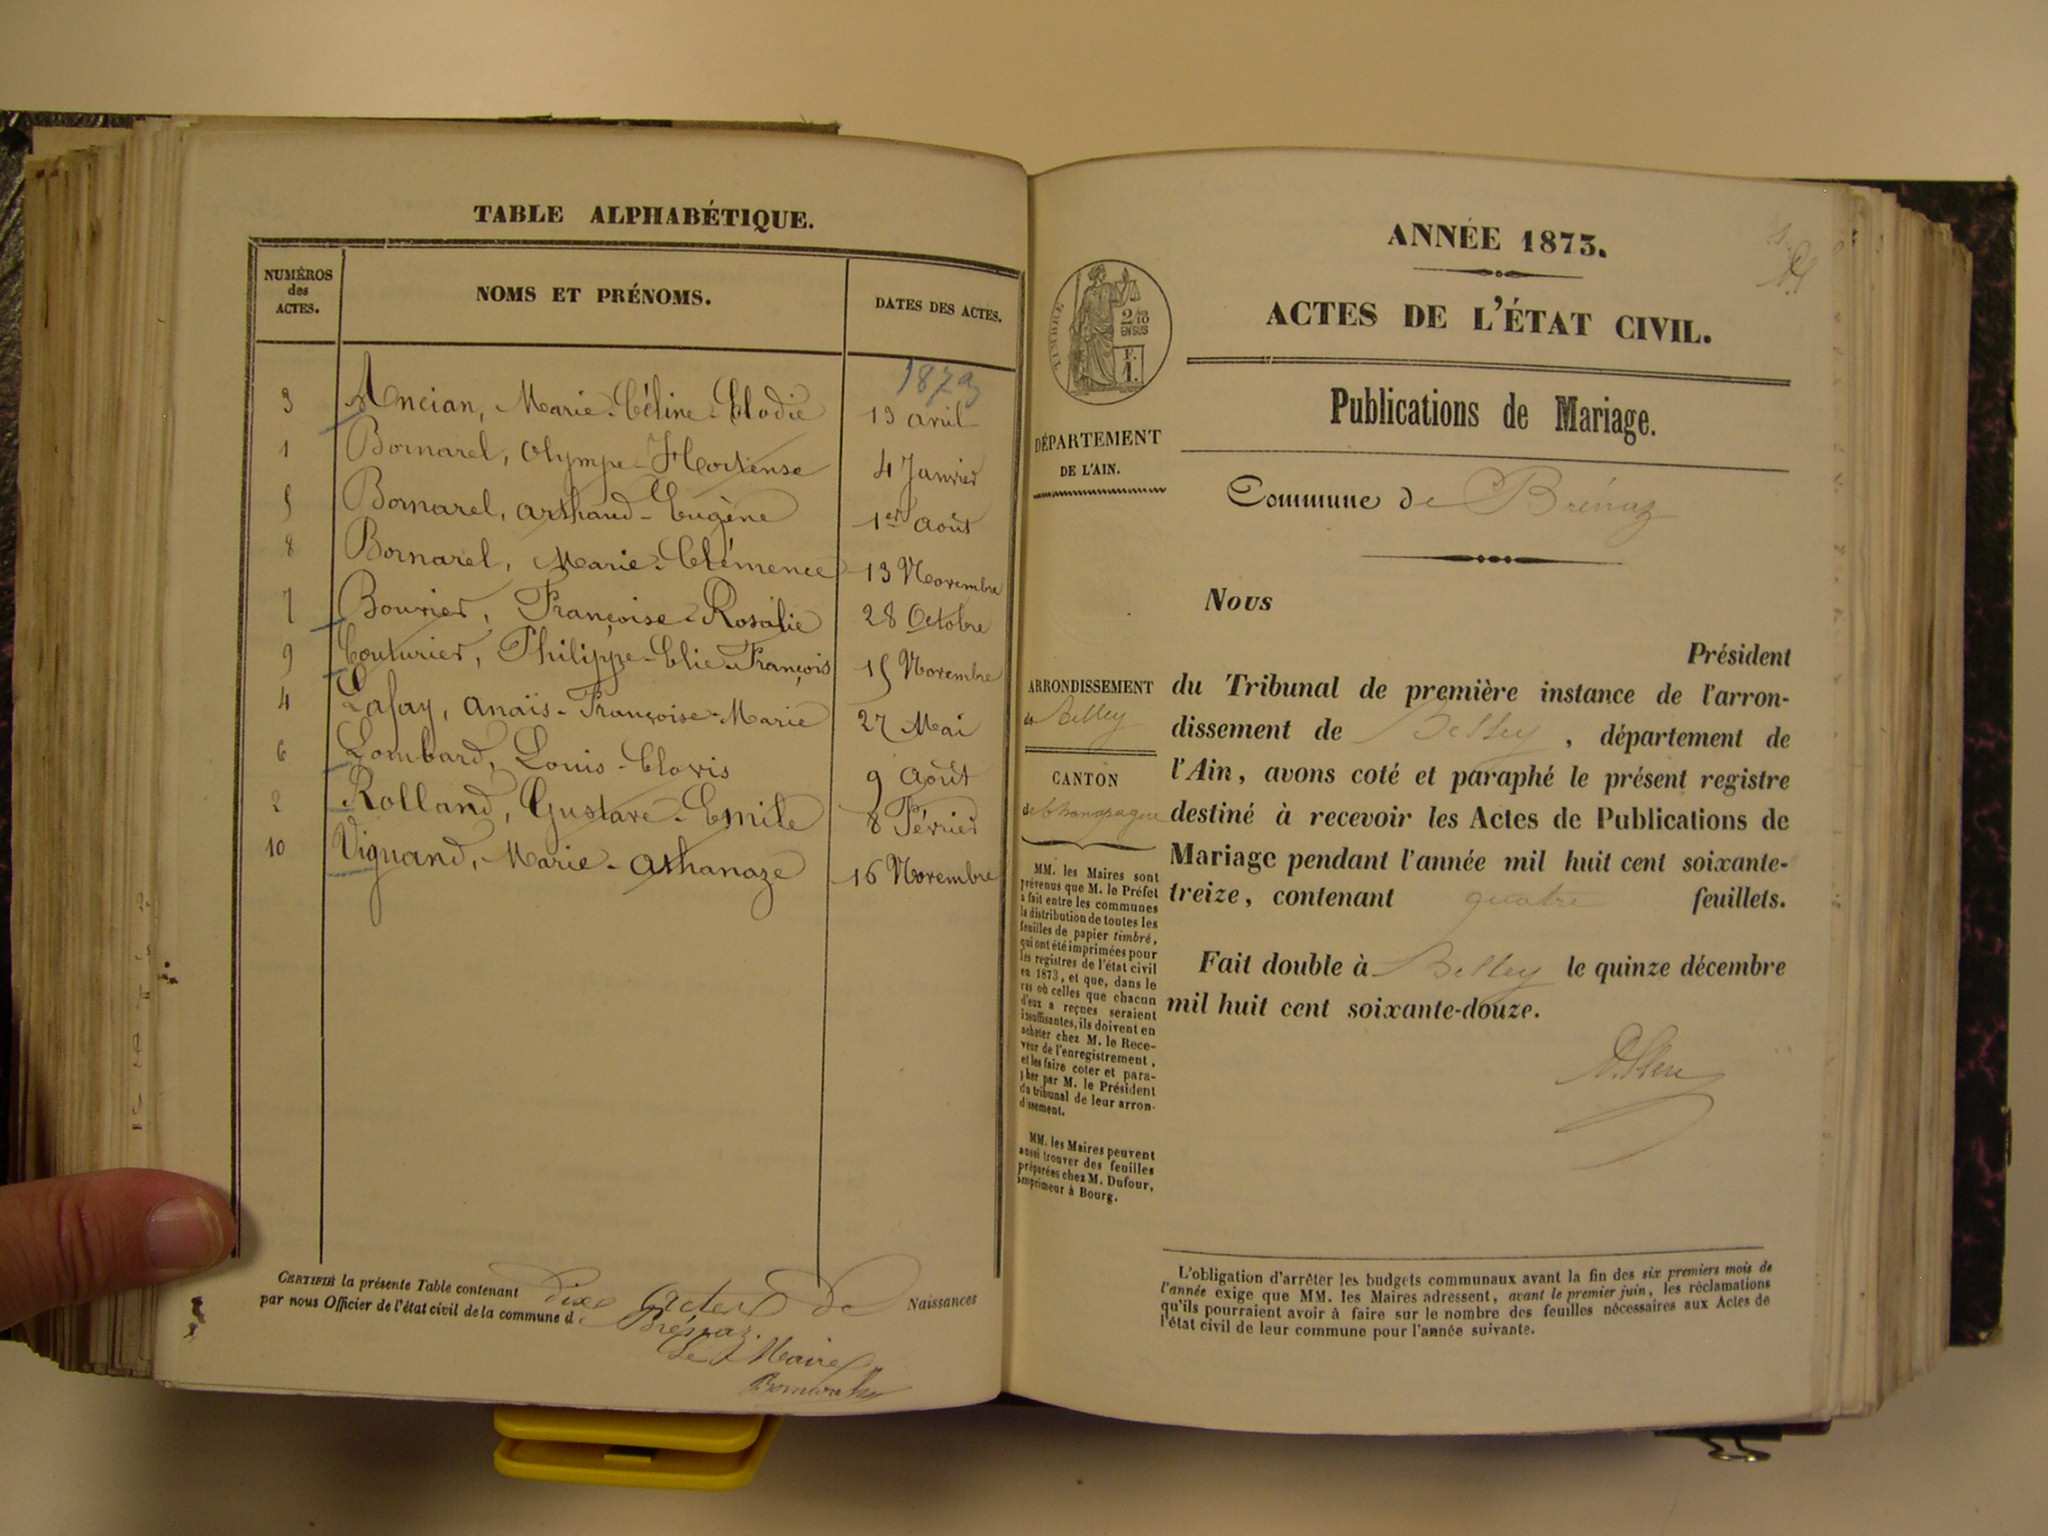 TABLE ALPHABÉTIQUE.
NUMÉROS
des
ACTES.
NOMS ET PRÉNOMS.
DATES DES ACTES.
1873
3 Ancian, Marie-Céline-Elodie 13 avril
1 Bornarel, Olympe-Hortense 4 Janvier
5 Bornarel, Arthaud-Eugène 1er août
8 Bornarel, Marie-Clémence 13 Novembre
7 Bouvier, Françoise-Rosalie 28 Octobre
9 Couturier, Philippe-Elie-François 15 Novembre
4 Lafay, Anaïs-Françoise-Marie 27 Mai
6 Lombard, Louis-Clovis 9 août
2 Rolland, Gustave-Emile 8 Février
10 Viguand, Marie-Athanaze 16 Novembre
CERTIFIÉ la présente Table contenant dix actes de Naissances
par nous Officier de l'état civil de la commune de Brénaz.
Le Maire
ANNÉE 1873.
ACTES DE L'ÉTAT CIVIL.
Publications de Mariage.
Commune de Brénaz
TIMBRE
2/10
EN SUS
F.
1.
DÉPARTEMENT
DE L'AIN.
ARRONDISSEMENT
de Belley
CANTON
de Champagne
MM. les Maires sont
prévenus que M. le Préfet
a fait entre les communes
la distribution de toutes les
feuilles de papier timbré,
qui ont été imprimées pour
les registres de l'état civil
en 1873, et que, dans le
cas où celles que chacun
d'eux a reçues seraient
insuffisantes, ils doivent en
acheter chez M. le Rece-
veur de l'enregistrement,
et les faire coter et para-
pher par M. le Président
du tribunal de leur arron-
dissement.
MM. les Maires peuvent
aussi trouver des feuilles
préparées chez M. Dufour,
imprimeur à Bourg.
Nous
Président
du Tribunal de première instance de l'arron-
dissement de Belley, département de
l'Ain, avons coté et paraphé le présent registre
destiné à recevoir les Actes de Publications de
Mariage pendant l'année mil huit cent soixante-
treize, contenant quatre feuillets.
Fait double à Belley le quinze décembre
mil huit cent soixante-douze.
L'obligation d'arrêter les budgets communaux avant la fin des six premiers mois de
l'année exige que MM. les Maires adressent, avant le premier juin, les réclamations
qu'ils pourraient avoir à faire sur le nombre des feuilles nécessaires aux Actes de
l'état civil de leur commune pour l'année suivante.